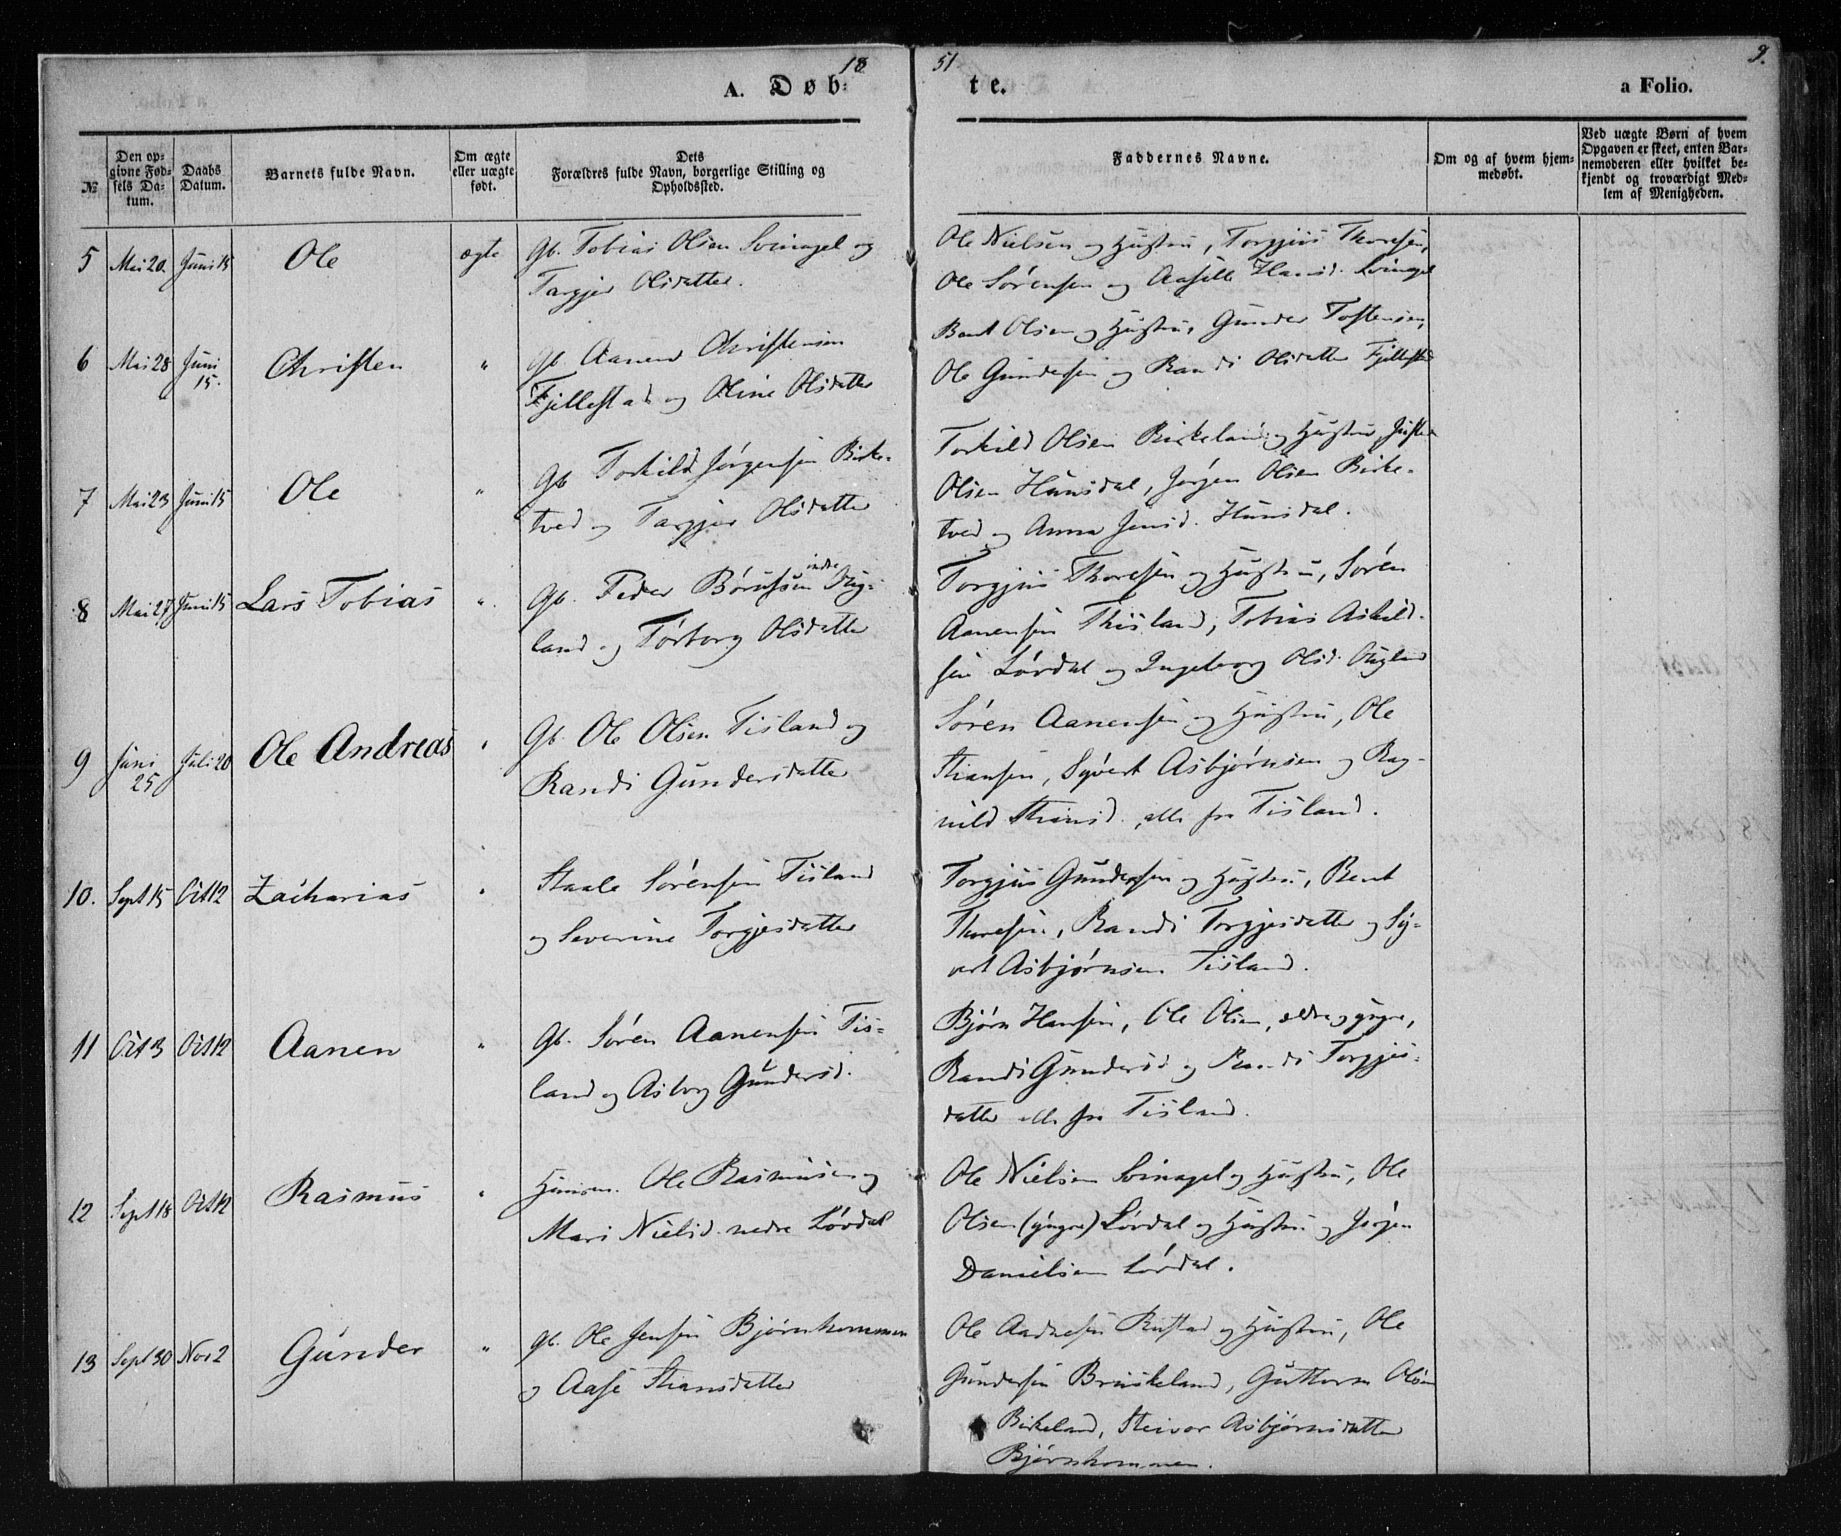 18 51 9.
A. Døb- te. a Folio.
№ Den opgivne Fødsels Datum. Daabs Datum. Barnets fulde Navn. Om ægte eller uægte født. Dets Forældres fulde Navn, borgerlige Stilling og Opholdssted. Faddernes Navne. Om og af hvem hjemmedøbt. Ved uægte Børn af hvem Opgaven er skeet, enten Barnemoderen eller hvilket bekjendt og troværdigt Medlem af Menigheden.
5 Mai 20. Juni 15 Ole ægte Gb. Tobias Olsen Svinagel og
Targjer Olsdatter.
Ole Nielsen og Hustru, Torgjus Thoresen,
Ole Sørensen og Aasille Hansd. Svinagel
6 Mai 28 Juni 15. Christen " Gb. Aanen Christensen
Fjellestad og Oline Olsdatter
Bent Olsen og Hustru, Gunder Tostensen,
Ole Gundersen og Randi Olsdatter Fjellestad
7 Mai 23 Juni 15 Ole " Gb Torkild Jørgensen Birke-
tved og Targjer Olsdatter
Torkild Olsen Birkeland og Hustru,
Olsen Hunsdal, Jørgen Olsen Birke-
tved og Anna Jensd. Hunsdal.
8 Mai 27 Juni 15 Lars Tobias " Gb. Peder Børufsen indre Aug-
land og Torborg Olsdatter
Torgjus Thoresen og Hustru, Søren
Aanensen Thisland, Tobias Askild-
sen Løvdal og Ingeborg Olsd. Augland
9 Juni 25 Juli 20 Ole Andreas " Gb. Ole Olsen Tisland og
Randi Gundersdatter
Søren Aanensen og Hustru, Ole
Stiansen, Syvert Asbjørnsen og Rag-
nild Stiansd. alle fra Tisland.
10. Sept 15 Oct 12 Zacharias " Staale Sørensen Tisland
og Severine Torgjesdatter
Torgjus Gundersen og Hustru, Bent
Thoresen, Randi Torgjesdatter og Sy-
vert Asbjørnsen Tisland.
11 Oct 3 Oct 12 Aanen " Gb. Søren Aanensen Tis-
land og Asborg Gundersd.
Bjørn Hansen, Ole Olsen, ældre og yngre,
Randi Gundersd og Randi Torgjes-
datter alle fra Tisland.
12 Sept 18 Oct 12 Rasmus " Huusm. Ole Rasmusen og
Mari Nielsd. nedre Løvdal
Ole Nielsen Svinagel og Hustru, Ole
Olsen (yngre) Løvdal og Hustru og Jørgen
Danielsen Løvdal.
13 Sept 30 Nov 2 Gunder " Gb. Ole Jensen Bjørnkommen
og Aase Stiansdatter
Ole Aadnesen Rustad og Hustru, Ole
Gundersen Bruskeland, Guttorm Olsen
Birkeland, Steivor Asbjørnsdatter
Bjørnkommen.